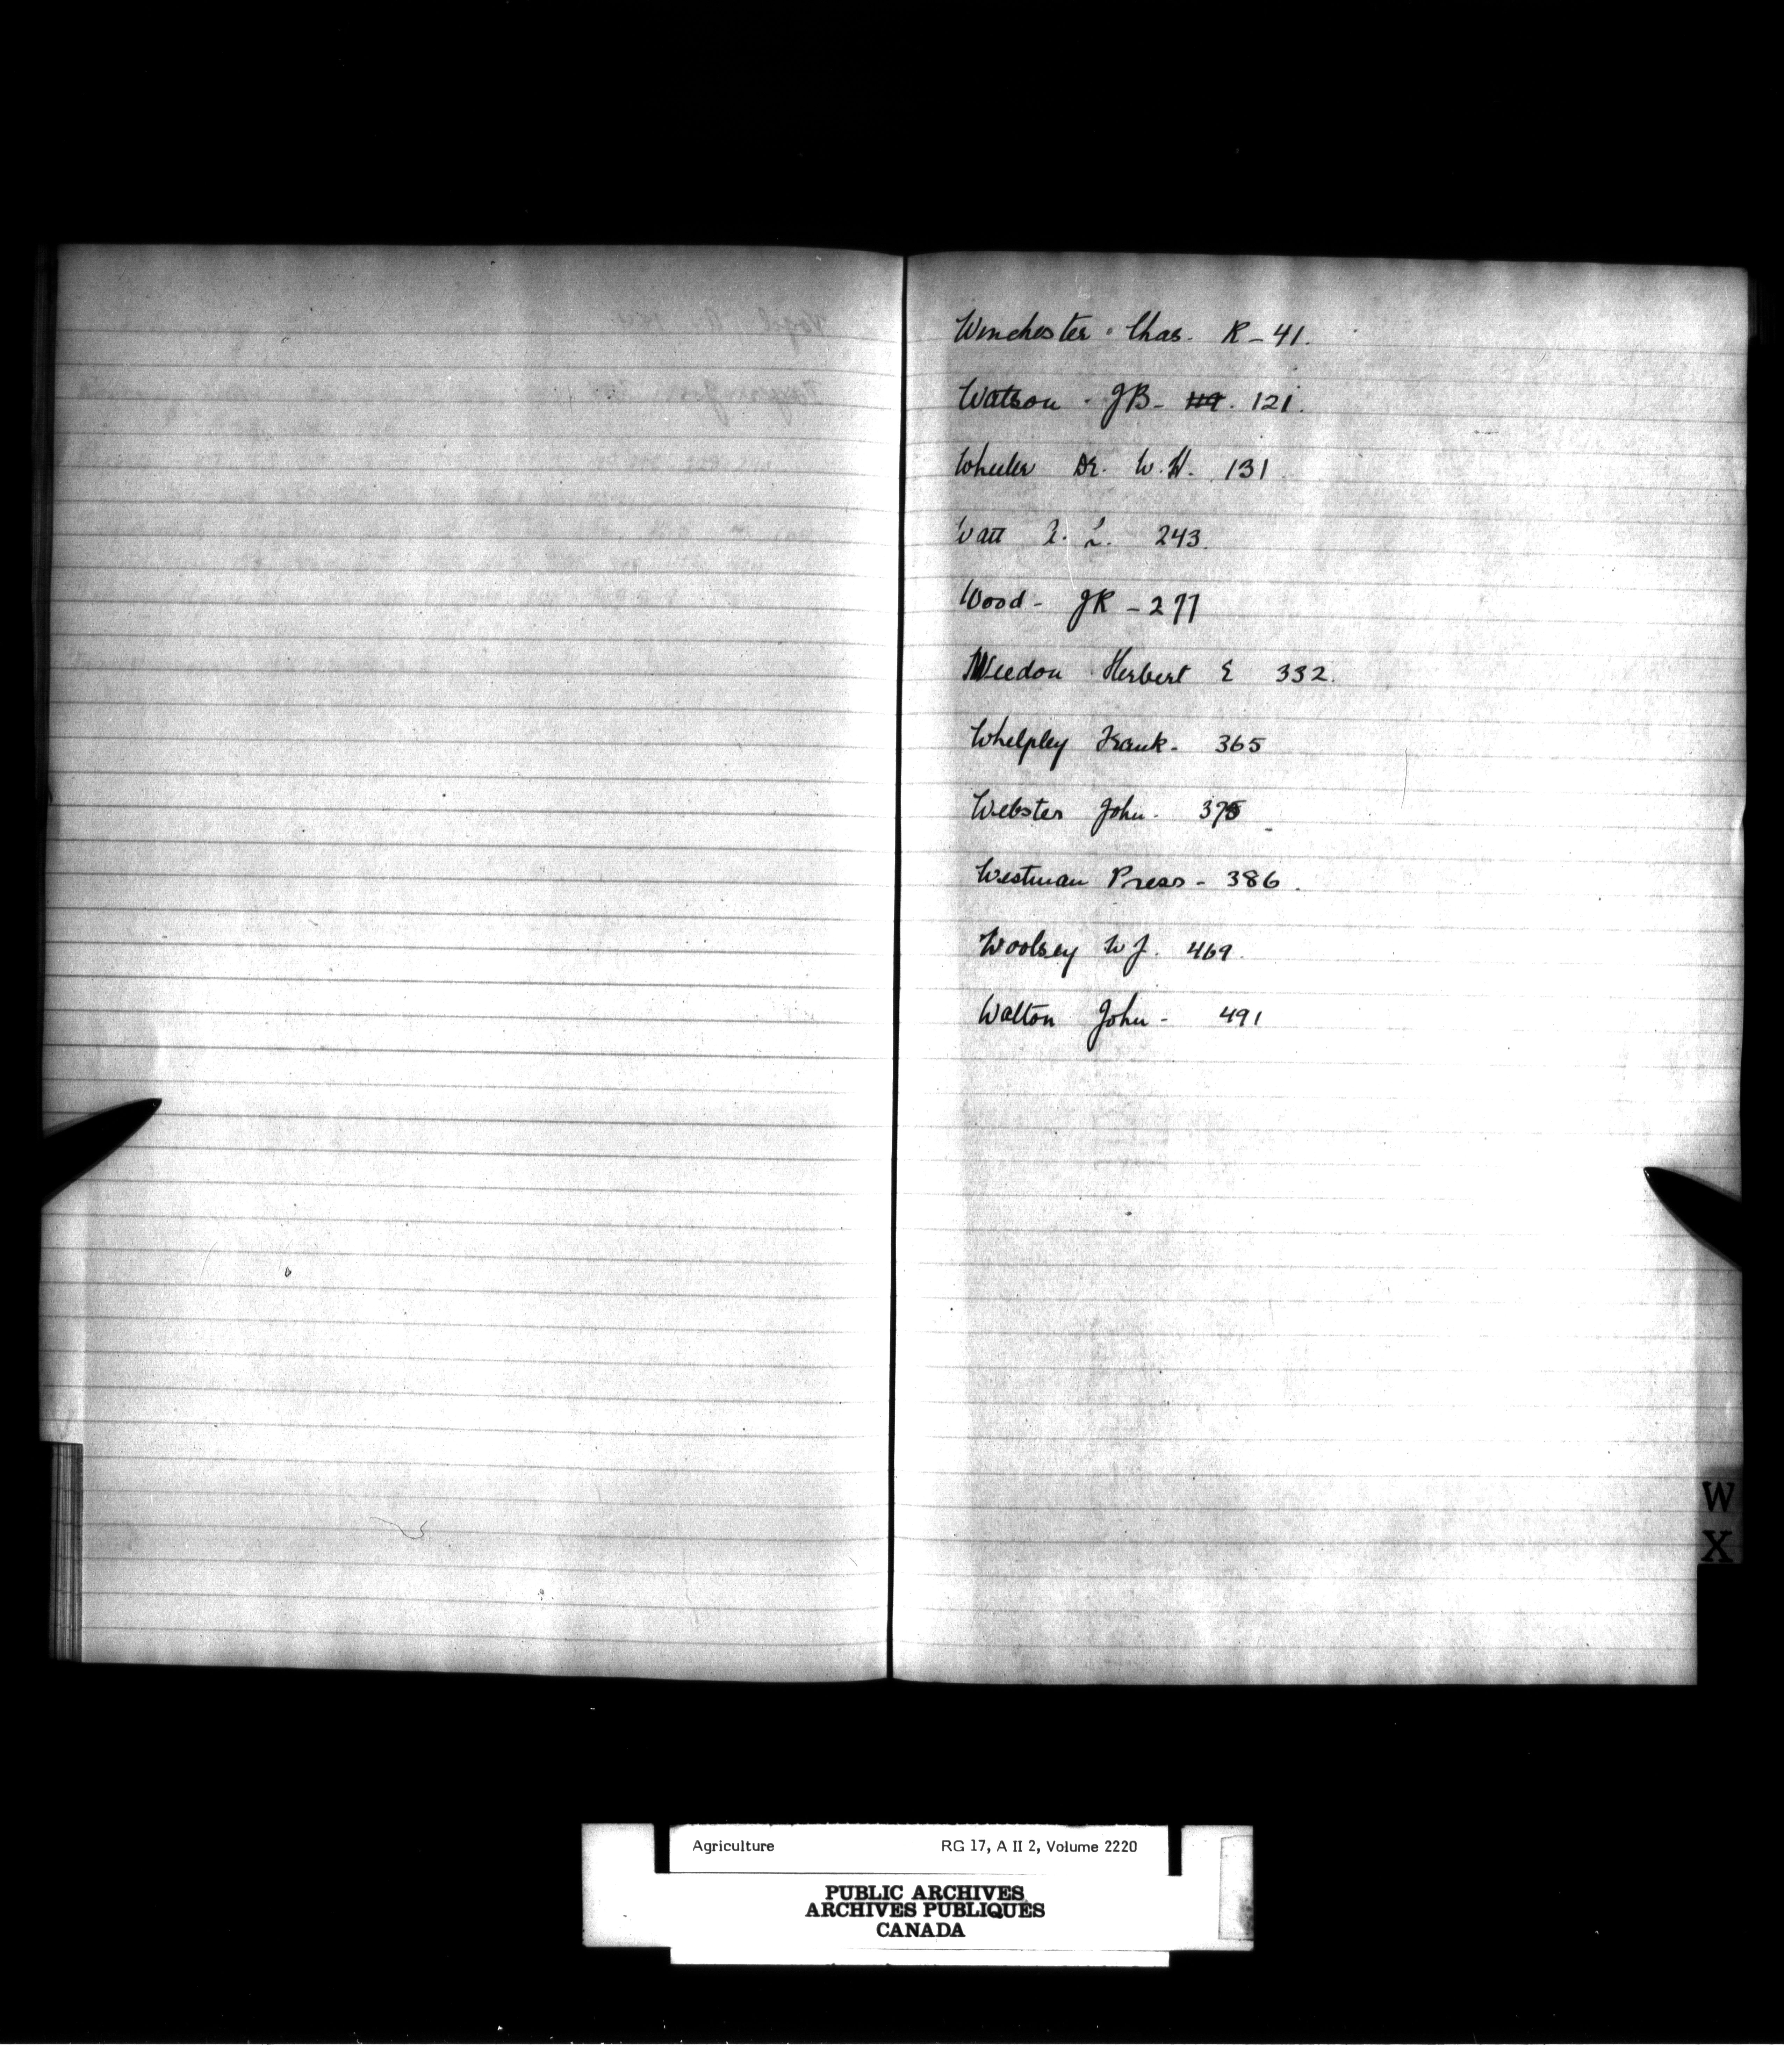 Winchester - Chas. R - 41.
Watson - JB - 119. 121.
Wheeler Dr. W. H. 131
Watt 243.
Wood - JR - 277
Weedon Herbert E 332.
Whelpley Frank - 365
Webster John - 375
Westman Press - 386.
Woolsey WJ. 469.
Walton John - 491
W
X
Agriculture RG 17, A II 2, Volume 2220
PUBLIC ARCHIVES
ARCHIVES PUBLIQUES
CANADA